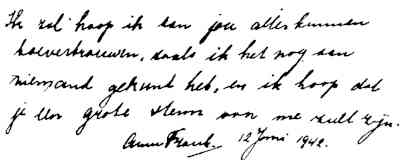 Ik zal hoop ik aan jou alles kunnen
toevertrouwen, zoals ik het nog aan
niemand gekund heb, en ik hoop dat
je een grote steun voor me zult zijn.
Anne Frank. 12 Juni 1942.